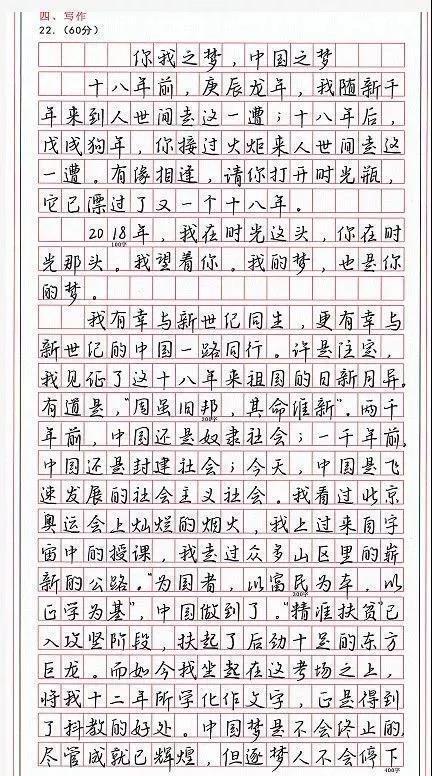 四、写作
22.（60分）
你我之梦，中国之梦
十八年前，庚辰龙年，我随新千
年来到人世间走这一遭；十八年后，
戊戌狗年，你接过火炬来人世间走这
一遭。有缘相逢，请你打开时光瓶，
它已漂过了又一个十八年。
2018年，我在时光这头，你在时
100字
光那头。我望着你。我的梦，也是你
的梦。
我有幸与新世纪同生，更有幸与
新世纪的中国一路同行。许是注定，
我见证了这十八年来祖国的日新月异。
有道是，“周虽旧邦，其命维新”。两千
200字
年前，中国还是奴隶社会；一千年前，
中国还是封建社会；今天，中国是飞
速发展的社会主义社会。我看过北京
奥运会上灿烂的烟火，我上过来自宇
宙中的授课，我走过众多山区里的崭
新的公路。“为国者，以富民为本，以
300字
正学为基”，中国做到了。“精准扶贫”已
入攻坚阶段，扶起了后劲十足的东方
巨龙。而如今我坐起在这考场之上，
将我十二年所学化作文字，正是得到
了科教的好处。中国梦是不会终止的，
尽管成就已辉煌，但逐梦人不会停下
400字